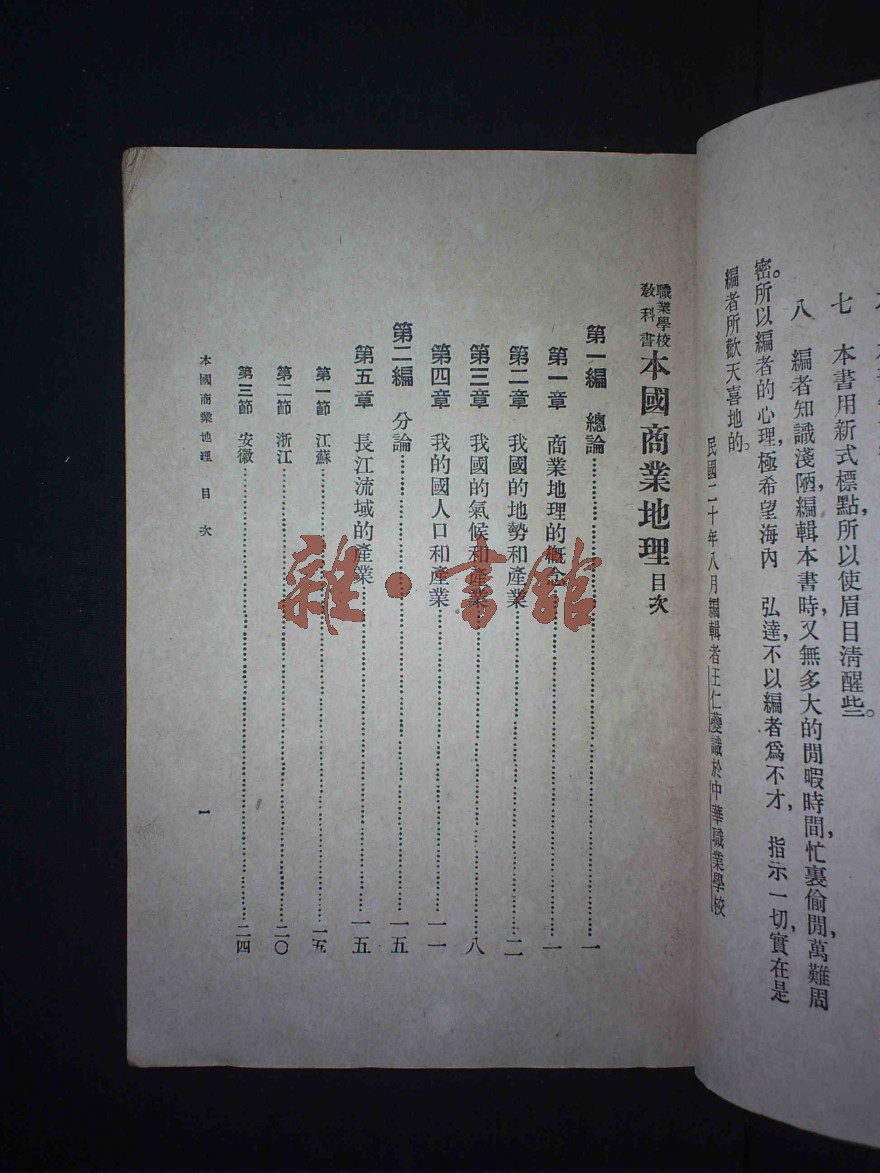 七　本書用新式標點，所以使眉目淸醒些。
八　編者知識淺陋，編輯本書時，又無多大的閒暇時間，忙裏偷閒，萬難周
密。所以編者的心理，極希望海內　弘達，不以編者爲不才，指示一切，實在是
編者所歡天喜地的。
民國二十年八月編輯者王仁夔識於中華職業學校
職業學校
敎科書
本國商業地理目次
第一編　總論……一
第一章　商業地理的概念……一
第二章　我國的地勢和產業……二
第三章　我國的氣候和產業……八
第四章　我的國人口和產業……一一
第二編　分論……一五
第五章　長江流域的產業……一五
第一節　江蘇……一五
第二節　浙江……二〇
第三節　安徽……二四
本國商業地理　目次
一
雜·書館